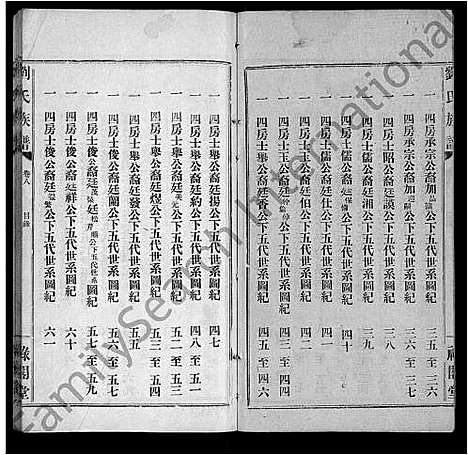 劉氏族譜
一 四房承宗公裔加 公下五代世系圖紀 三五 至 三六
一 四房承宗公裔加 公下五代世系圖紀 三六 至 三七
一 四房士昭公裔廷談公下五代世系圖紀 三八
一 四房士儒公裔廷湘公下五代世系圖紀 三九
一 四房士儒公裔廷 公下五代世系圖紀 四十
一 四房士玉公裔廷 公下五代世系圖紀
一 四房士玉公裔廷伯公下五代世系圖紀
一 四房士舉公裔廷香公下五代世系圖紀 四五 至 四六
祿閣堂
一 四房士舉公裔廷揚公下五代世系圖紀 四七
一 四房士舉公裔廷約公下五代世系圖紀 四八 至 五一
一 四房士舉公裔廷 公下五代世系圖紀 五二 至 五三
一 四房士舉公裔廷煜公下五代世系圖紀 五三 至 五四
一 四房士舉公裔廷發公下五代世系圖紀 五五
一 四房士俊公裔廷蘭公下五代世系圖紀 五六 至 五七
一 四房士俊公裔廷 廷 公下五代世系圖紀 五七 至 五九
一 四房士俊公裔廷祥公下五代世系圖紀 六十
一 四房士俊公裔廷 公下五代世系圖紀 六一
劉氏族譜 卷八 目錄 祿閣堂
FamilySearch International